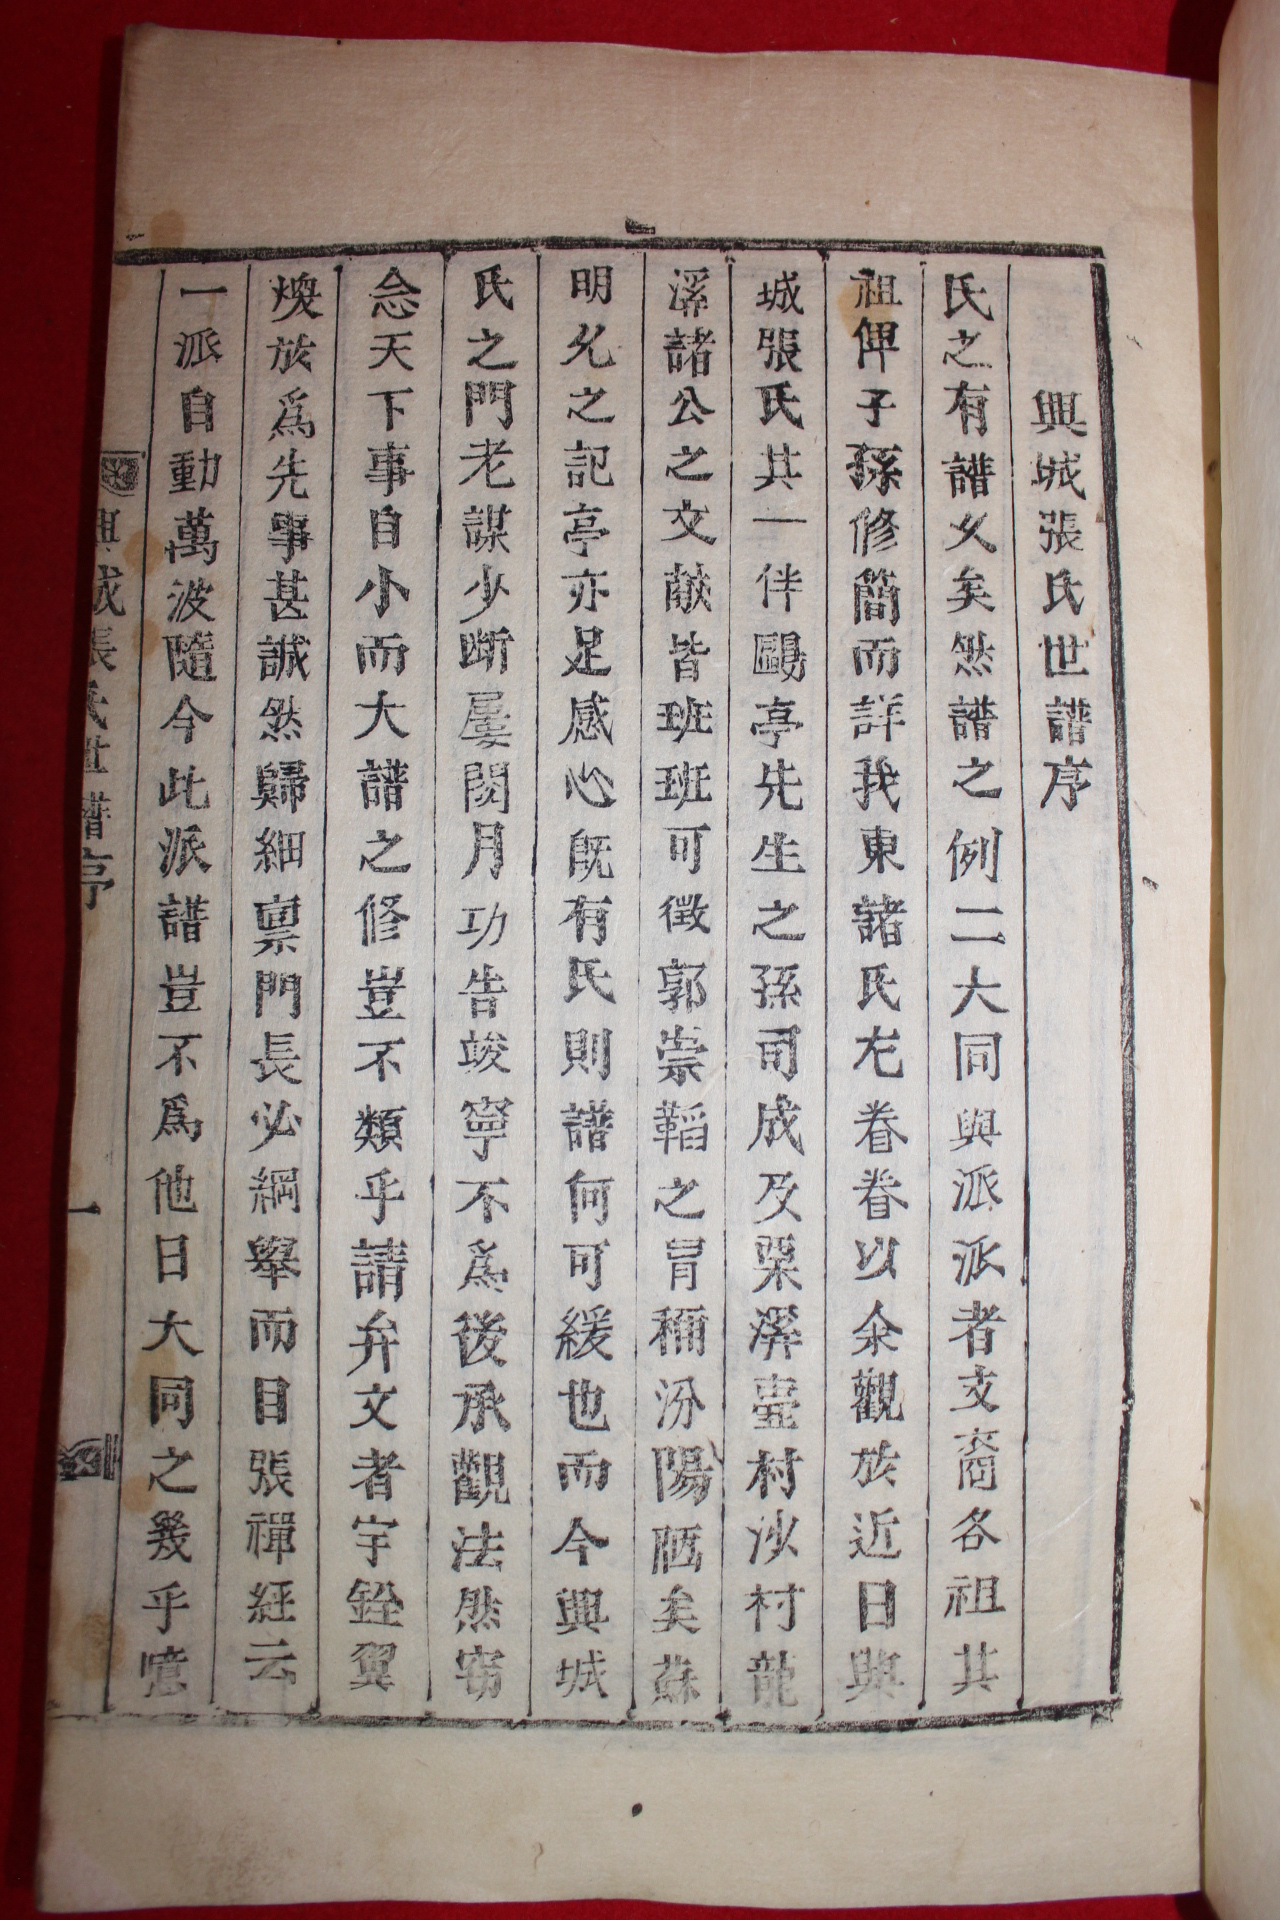 興城張氏世譜序
氏之有譜久矣然譜之例二大同與派派者支裔各祖其
祖俾子孫修簡而詳我東諸氏尤眷眷以余觀於近日興
城張氏其一伴鷗亭先生之孫司成及栗溪壼村沙村龍
溪諸公之文獻皆班班可徵郭崇韜之冒稱汾陽陋矣蘇
明允之記亭亦足感心旣有氏則譜何可緩也而今興城
氏之門老謀少斷屢閱月功告竣寧不爲後承觀法然窃
念天下事自小而大譜之修豈不類乎請弁文者宇銓翼
煥於爲先事甚誠然歸細稟門長必綱舉而目張禪經云
一派自動萬波隨今此派譜豈不爲他日大同之幾乎噫
興城張氏世譜序
一